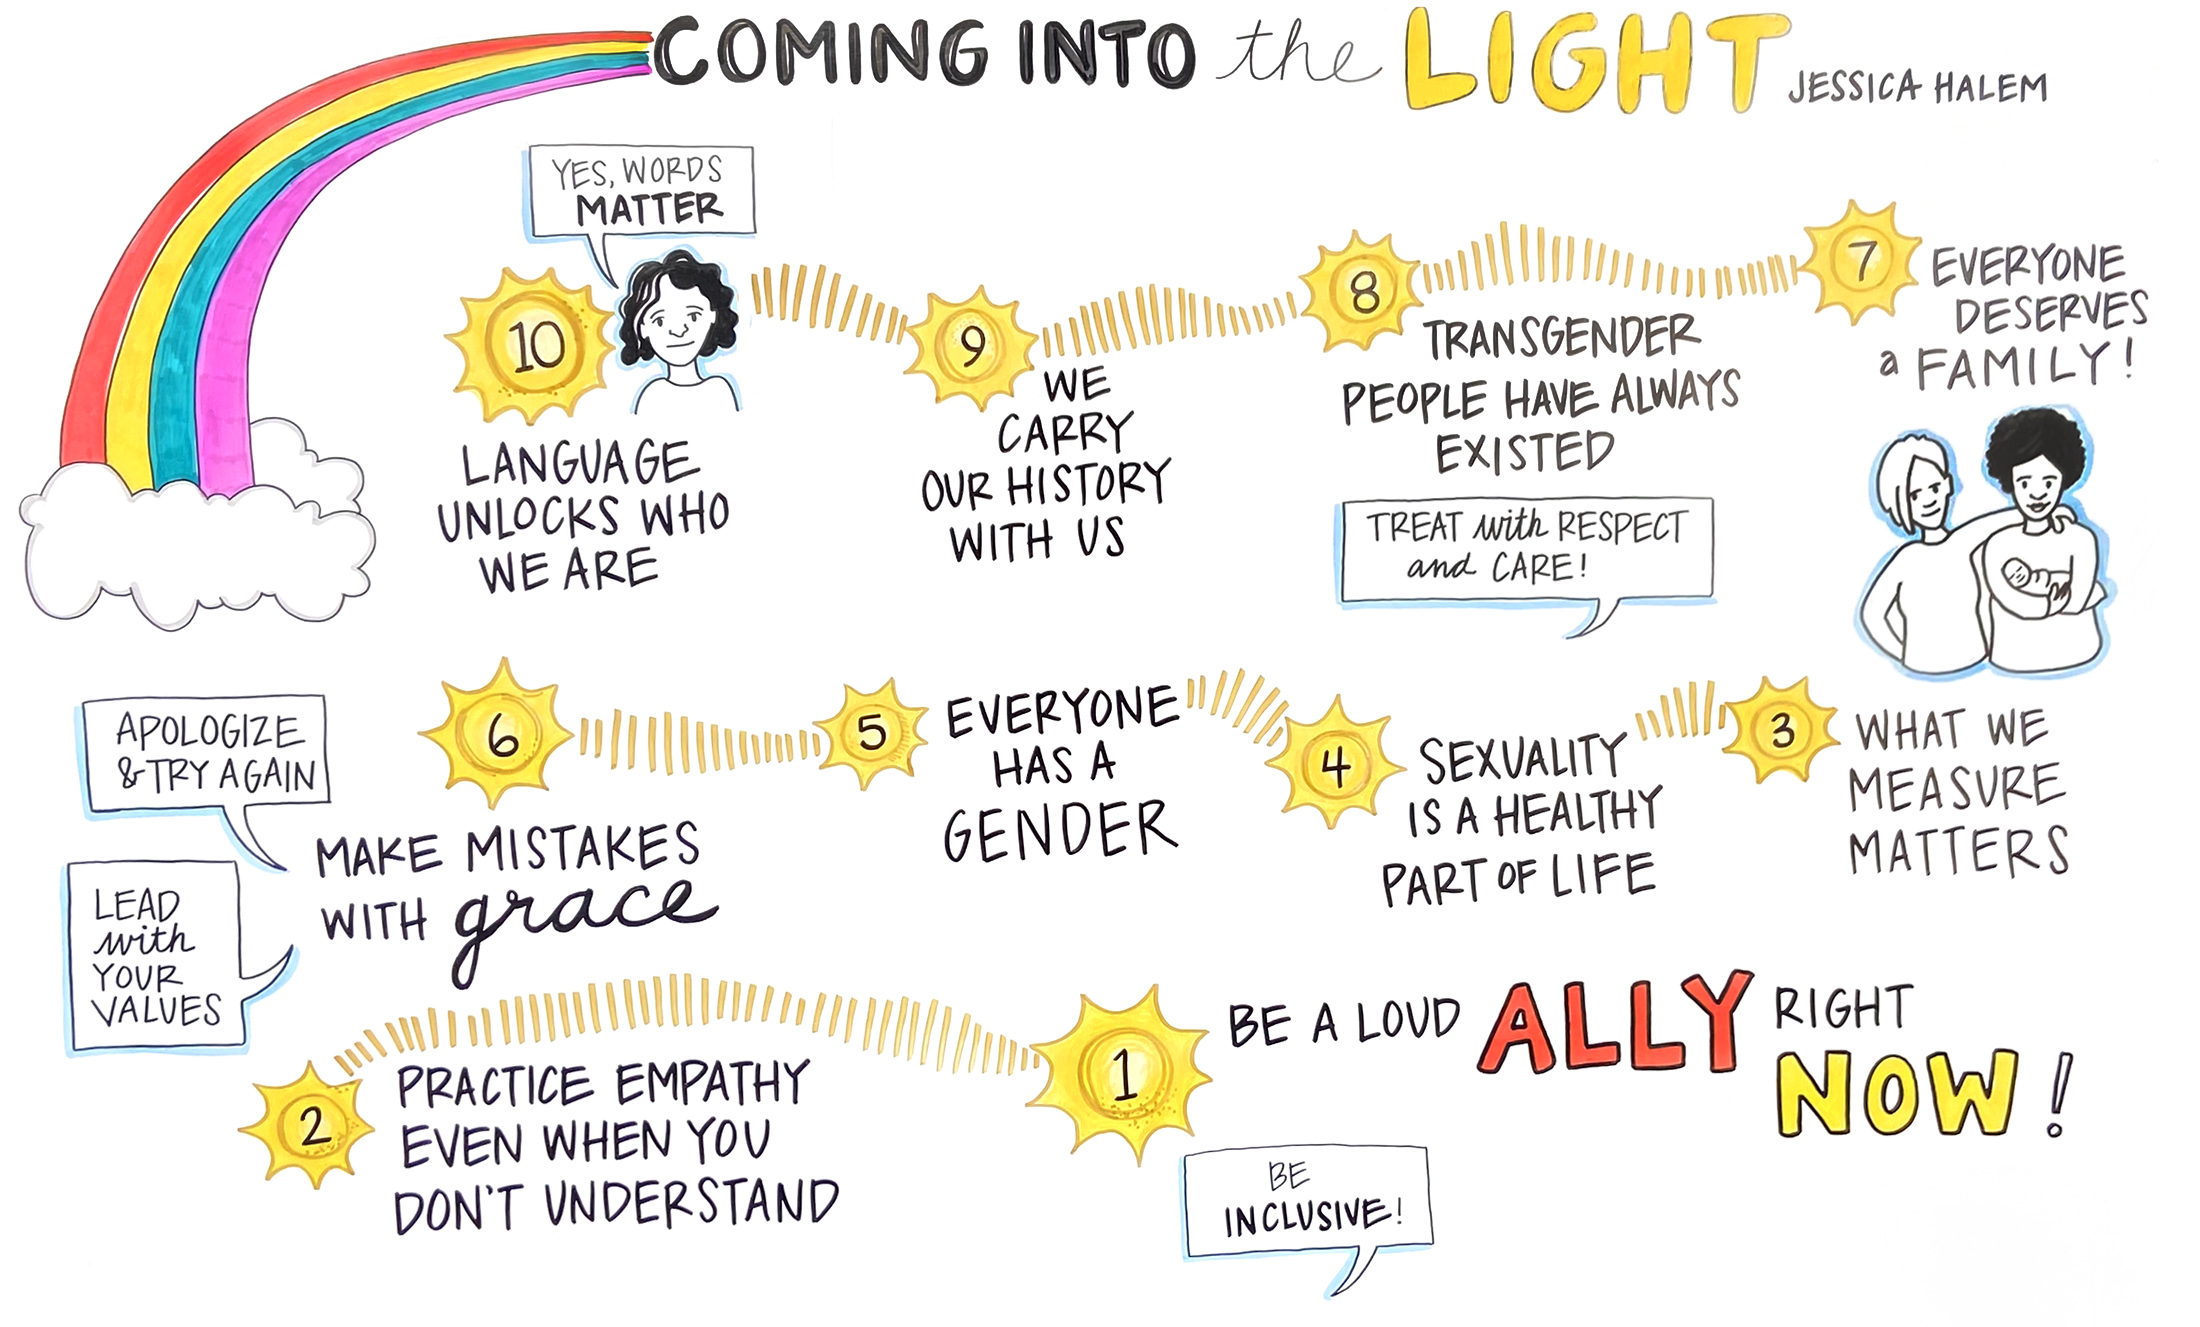 COMING INTO the LIGHT JESSICA HALEM
YES, WORDS
MATTER
10
LANGUAGE
UNLOCKS WHO
WE ARE
9
WE
CARRY
OUR HISTORY
WITH US
8
TRANSGENDER
PEOPLE HAVE ALWAYS
EXISTED
TREAT with RESPECT
and CARE!
7
EVERYONE
DESERVES
a FAMILY!
6
APOLOGIZE
& TRY AGAIN
MAKE MISTAKES
WITH grace
LEAD
with
YOUR
VALUES
5
EVERYONE
HAS A
GENDER
4
SEXUALITY
IS A HEALTHY
PART OF LIFE
3
WHAT WE
MEASURE
MATTERS
2
PRACTICE EMPATHY
EVEN WHEN YOU
DON'T UNDERSTAND
1
BE A LOUD ALLY RIGHT
NOW!
BE
INCLUSIVE!